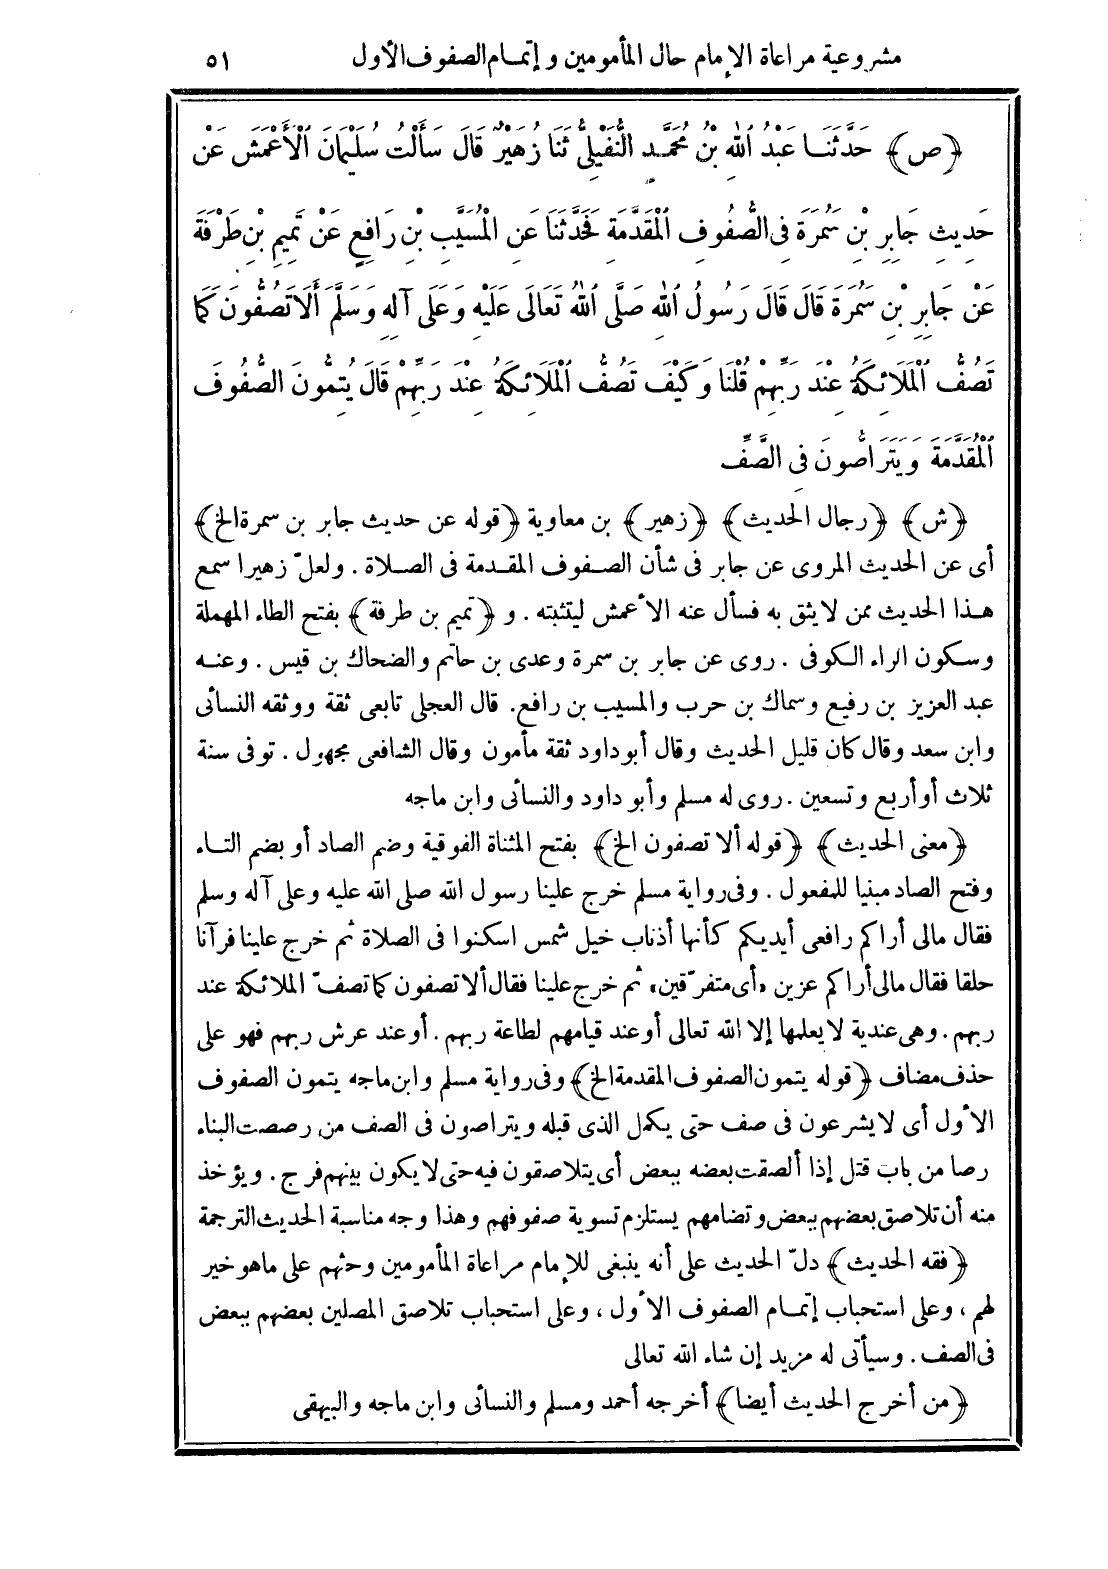 مشروعية مراعاة الإمام حال المأمومين وإتمام الصفوف الأول ٥١
﴿ص﴾ حَدَّثَنَا عَبْدُ اللهِ بْنُ مُحَمَّدٍ النُّفَيْلِيُّ ثَنَا زُهَيْرٌ قَالَ سَأَلْتُ سُلَيْمَانَ الْأَعْمَشَ عَنْ
حَدِيثِ جَابِرِ بْنِ سَمُرَةَ فِي الصُّفُوفِ الْمُقَدَّمَةِ فَحَدَّثَنَا عَنِ الْمُسَيَّبِ بْنِ رَافِعٍ عَنْ تَمِيمِ بْنِ طَرْفَةَ
عَنْ جَابِرِ بْنِ سَمُرَةَ قَالَ قَالَ رَسُولُ اللهِ صَلَّى اللهُ تَعَالَى عَلَيْهِ وَعَلَى آلِهِ وَسَلَّمَ أَلَا تَصُفُّونَ كَمَا
تَصُفُّ الْمَلَائِكَةُ عِنْدَ رَبِّهِمْ قُلْنَا وَكَيْفَ تَصُفُّ الْمَلَائِكَةُ عِنْدَ رَبِّهِمْ قَالَ يُتِمُّونَ الصُّفُوفَ
الْمُقَدَّمَةَ وَيَتَرَاصُّونَ فِي الصَّفِّ
﴿ش﴾ ﴿رجال الحديث﴾ ﴿زهير﴾ بن معاوية ﴿قوله عن حديث جابر بن سمرة الخ﴾
أى عن الحديث المروى عن جابر فى شأن الصفوف المقدمة فى الصلاة. ولعلّ زهيرا سمع
هذا الحديث ممن لا يثق به فسأل عنه الأعمش ليتثبته. و﴿تميم بن طرفة﴾ بفتح الطاء المهملة
وسكون الراء الكوفى. روى عن جابر بن سمرة وعدى بن حاتم والضحاك بن قيس. وعنه
عبد العزيز بن رفيع وسماك بن حرب والمسيب بن رافع. قال العجلى تابعى ثقة ووثقه النسائى
وابن سعد وقال كان قليل الحديث وقال أبو داود ثقة مأمون وقال الشافعى مجهول. توفى سنة
ثلاث أو أربع وتسعين. روى له مسلم وأبو داود والنسائى وابن ماجه
﴿معنى الحديث﴾ ﴿قوله ألا تصفون الخ﴾ بفتح المثناة الفوقية وضم الصاد أو بضم التاء
وفتح الصاد مبنيا للمفعول. وفى رواية مسلم خرج علينا رسول الله صلى الله عليه وعلى آله وسلم
فقال مالى أراكم رافعى أيديكم كأنها أذناب خيل شمس اسكنوا فى الصلاة ثم خرج علينا فرآنا
حلقا فقال مالى أراكم عزين «أى متفرّقين» ثم خرج علينا فقال ألا تصفون كما تصفّ الملائكة عند
ربهم. وهى عندية لا يعلمها إلا الله تعالى أو عند قيامهم لطاعة ربهم. أو عند عرش ربهم فهو على
حذف مضاف ﴿قوله يتمون الصفوف المقدمة الخ﴾ وفى رواية مسلم وابن ماجه يتمون الصفوف
الأول أى لا يشرعون فى صف حتى يكمل الذى قبله ويتراصون فى الصف من رصصت البناء
رصا من باب قتل إذا ألصقت بعضه ببعض أى يتلاصقون فيه حتى لا يكون بينهم فرج. ويؤخذ
منه أن تلاصق بعضهم ببعض وتضامهم يستلزم تسوية صفوفهم وهذا وجه مناسبة الحديث الترجمة
﴿فقه الحديث﴾ دلّ الحديث على أنه ينبغى للإمام مراعاة المأمومين وحثهم على ما هو خير
لهم، وعلى استحباب إتمام الصفوف الأول، وعلى استحباب تلاصق المصلين بعضهم ببعض
فى الصف. وسيأتى له مزيد إن شاء الله تعالى
﴿من أخرج الحديث أيضا﴾ أخرجه أحمد ومسلم والنسائى وابن ماجه والبيهقى